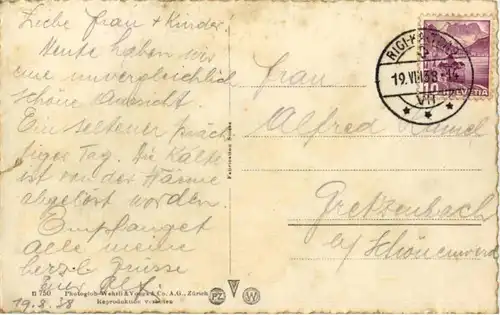 Liebe Frau + Kinder!
Heute haben wir
eine unvergleichlich
schöne Aussicht.
Ein seltener präch
tiger Tag. Die Kälte
ist von der Wärme
abgelöst worden.
Empfanget
alle meine
herzl. Grüsse
Euer Alf.
19.8.38
B 750 Photoglob-Wehrli & Vouga & Co. A.G., Zürich
Reproduktion verboten
PZ W
RIGI-
19.VIII.38
VII
10
HELVETIA
Frau
Alfred
Gretzenbach
b/ Schönenwerd